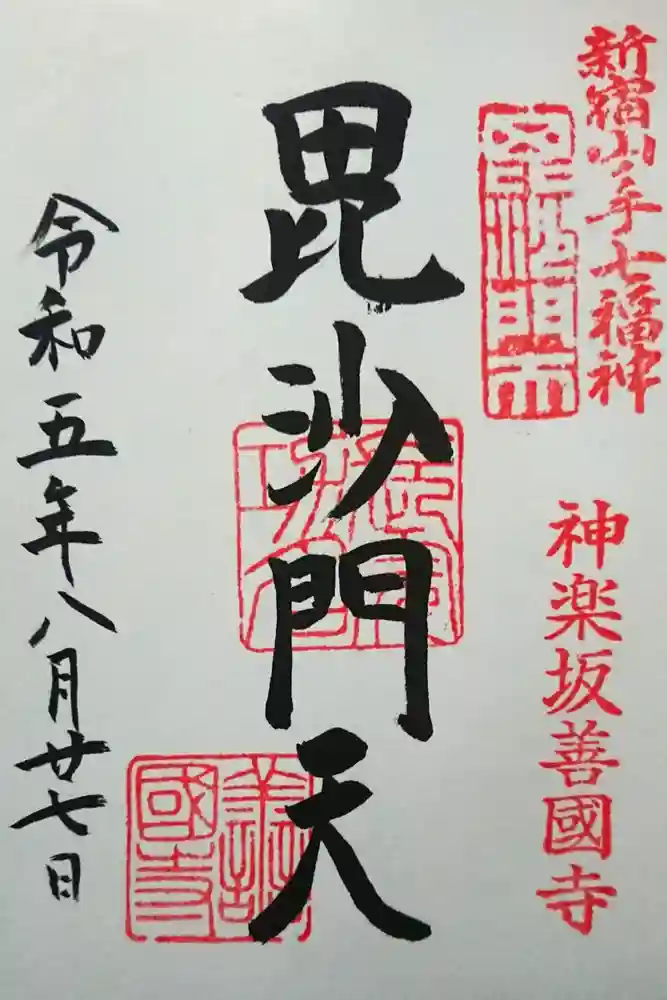 新宿山ノ手七福神
毘沙門天
神楽坂善國寺
毘沙門天
善國寺
令和五年八月廿七日